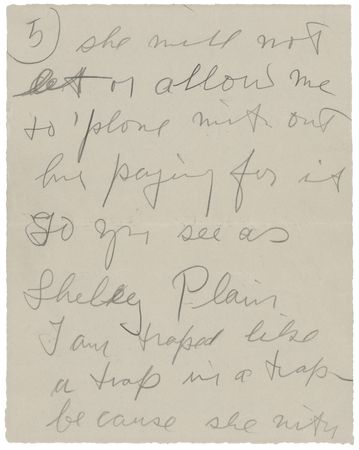 5) she will not
let or allow me
to 'phone with out
her paying for it
So you see as
Shelley Plain
I am traped like
a trap in a trap
because she with